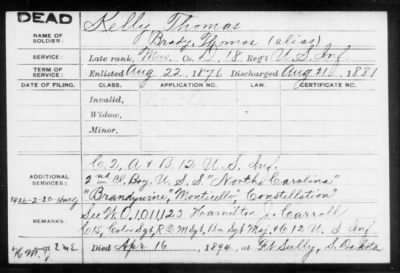 DEAD
NAME OF SOLDIER:
Kelly, Thomas
Brady, Thomas (alias)
SERVICE:
Late rank, Mus. Co. D, 18 Reg't U.S. Inf.
TERM OF SERVICE:
Enlisted Aug 22, 1876 Discharged Aug 21, 1881
DATE OF FILING. CLASS. APPLICATION NO. LAW. CERTIFICATE NO.
Invalid,
Widow,
Minor,
ADDITIONAL SERVICES:
C. 2, A & B, 12 U.S. Inf.
2nd Cl. Boy, U.S.S. "North Carolina"
"Brandywine," Monticello, Constellation"
REMARKS:
See W.O. 1011123 Hamilton J. Carroll
Color Sgt, Sgt Maj, & C 12 U.S. Inf
Died Apr. 16, 1894, at Ft Sully, S. Dakota